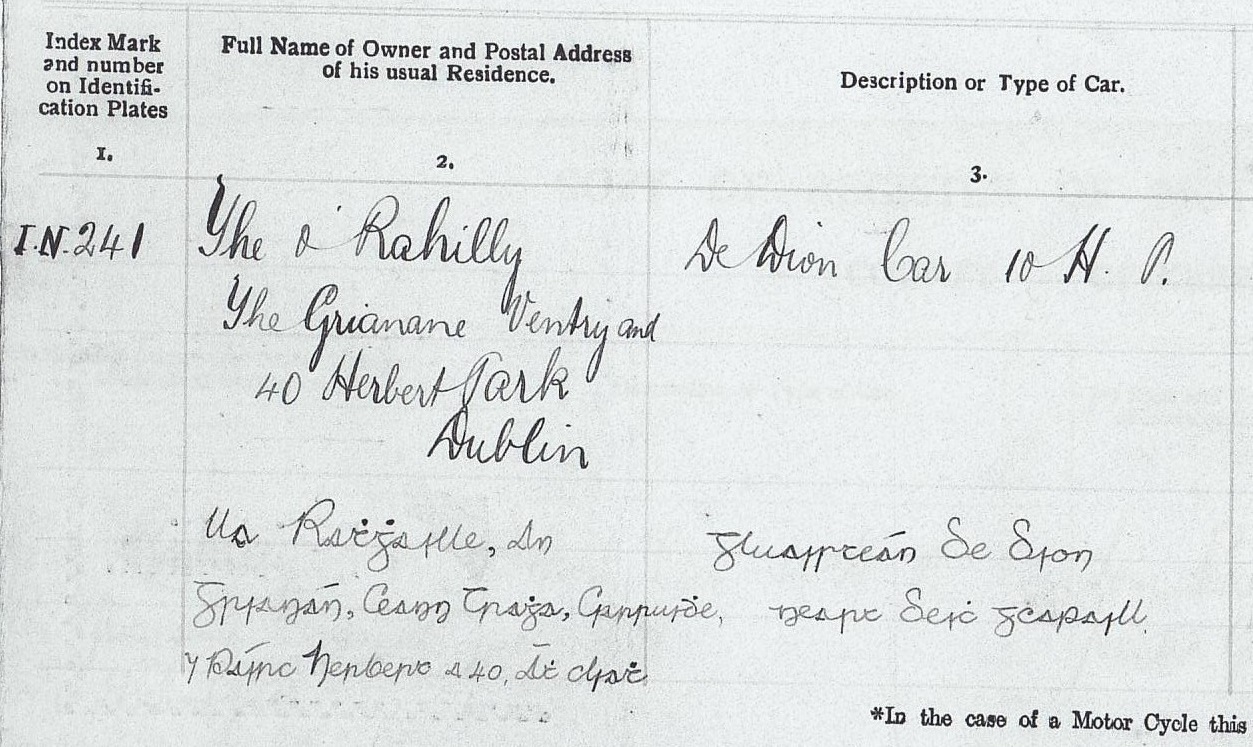 Index Mark
and number
on Identifi-
cation Plates
1.
Full Name of Owner and Postal Address
of his usual Residence.
2.
Description or Type of Car.
3.
I.N. 241
The O' Rahilly
The Grianane Ventry and
40 Herbert Park
Dublin
De Dion Car 10 H. P.
Ua Raṫġaille, An
Grianán, Ceann Traġa, Ciarruiḋe,
⁊ Páirc Herbert a 40, Áṫ Cliaṫ
Gluaisteán De Dion
neart Deiċ gcapaill.
*In the case of a Motor Cycle this